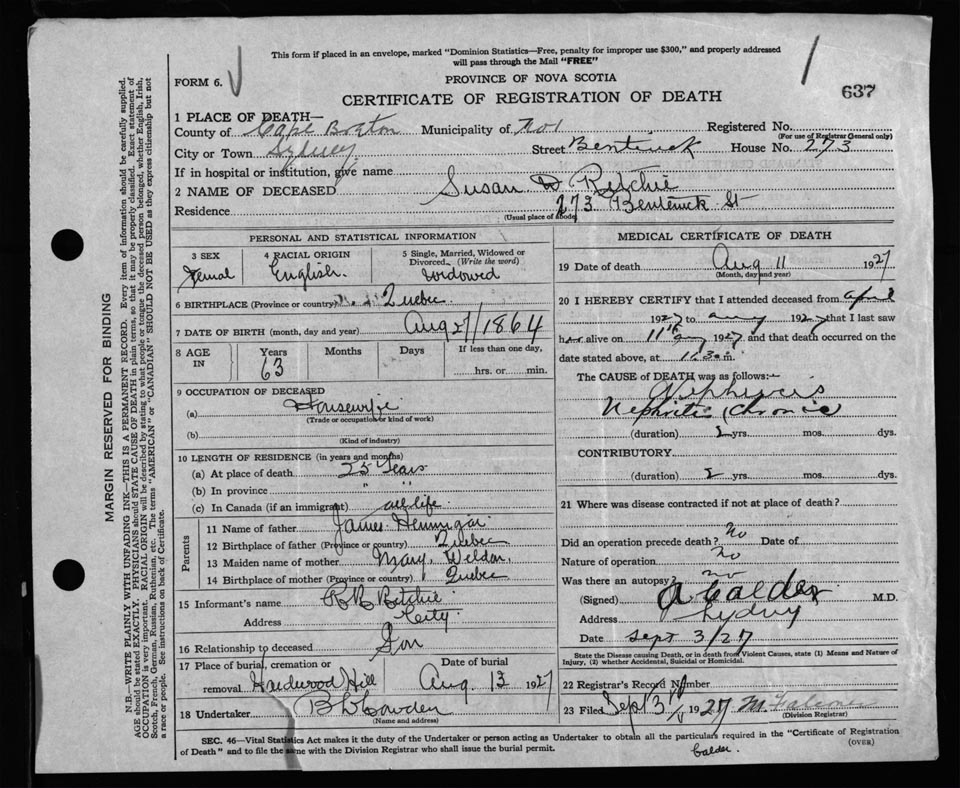 This form if placed in an envelope, marked "Dominion Statistics—Free, penalty for improper use $300," and properly addressed
will pass through the Mail "FREE"
FORM 6.
PROVINCE OF NOVA SCOTIA
637
CERTIFICATE OF REGISTRATION OF DEATH
1 PLACE OF DEATH—
County of Cape Breton Municipality of No 1 Registered No.
(For use of Registrar General only)
City or Town Sydney Street Bentinck House No. 273
If in hospital or institution, give name
2 NAME OF DECEASED Susan D Ritchie
Residence 273 Bentinck St
(Usual place of abode)
PERSONAL AND STATISTICAL INFORMATION
3 SEX Femal
4 RACIAL ORIGIN English.
5 Single, Married, Widowed or Divorced. (Write the word) widowed
6 BIRTHPLACE (Province or country) Quebec
7 DATE OF BIRTH (month, day and year) Aug 27/1864
8 AGE IN Years Months Days If less than one day,
63 hrs. or min.
9 OCCUPATION OF DECEASED
(a) Housewife
(Trade or occupation or kind of work)
(b)
(Kind of industry)
10 LENGTH OF RESIDENCE (in years and months)
(a) At place of death 25 Years
(b) In province " "
(c) In Canada (if an immigrant) all life
Parents
11 Name of father James Hennigar
12 Birthplace of father (Province or country) Quebec
13 Maiden name of mother Mary Weldon
14 Birthplace of mother (Province or country) Quebec
15 Informant's name R B Ritchie
Address City
16 Relationship to deceased Son
17 Place of burial, cremation or Date of burial
removal Hardwood Hill Aug. 13 1927
18 Undertaker
(Name and address)
MEDICAL CERTIFICATE OF DEATH
19 Date of death Aug 11 1927
(Month, day and year)
20 I HEREBY CERTIFY that I attended deceased from April
1927 to Aug 1927 that I last saw
her alive on 11th Aug 1927 and that death occurred on the
date stated above, at
The CAUSE OF DEATH was as follows:—
Nephritis Chronic
(duration) 2 yrs. mos. dys.
CONTRIBUTORY
(duration) 2 yrs. mos. dys.
21 Where was disease contracted if not at place of death?
Did an operation precede death? No Date of
Nature of operation No
Was there an autopsy? no
(Signed) A Calder M.D.
Address Sydney
Date Sept 3/27
State the Disease causing Death, or in death from Violent Causes, state (1) Means and Nature of
Injury, (2) whether Accidental, Suicidal or Homicidal.
22 Registrar's Record Number
23 Filed Sept 3rd 1927
(Division Registrar)
SEC. 46—Vital Statistics Act makes it the duty of the Undertaker or person acting as Undertaker to obtain all the particulars required in the "Certificate of Registration
of Death" and to file the same with the Division Registrar who shall issue the burial permit.
Calder.
(OVER)
MARGIN RESERVED FOR BINDING
N.B.—WRITE PLAINLY WITH UNFADING INK—THIS IS A PERMANENT RECORD. Every item of information should be carefully supplied.
AGE should be stated EXACTLY. PHYSICIANS should STATE CAUSE OF DEATH in plain terms, so that it may be properly classified. Exact statement of
OCCUPATION is very important. RACIAL ORIGIN will be described by stating to what people or tongue the deceased person belonged, whether English, Irish,
Scotch, French, German, Russian, Ruthenian, etc. The terms "AMERICAN" or "CANADIAN" SHOULD NOT BE USED as they express citizenship but not
a race or people. See instructions on back of Certificate.